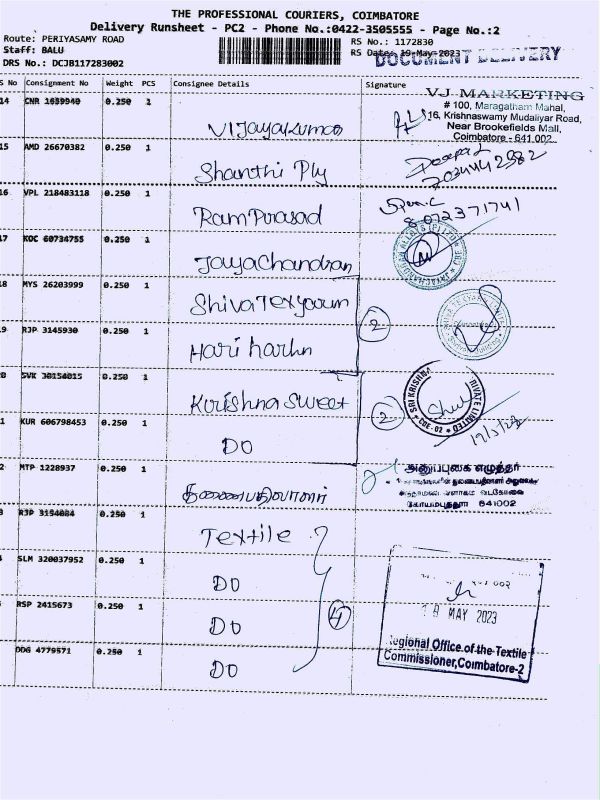 THE PROFESSIONAL COURIERS, COIMBATORE
Delivery Runsheet - PC2 - Phone No.:0422-3505555 - Page No.:2
Route: PERIYASAMY ROAD
RS No.: 1172830
Staff: BALU
RS Date: 19-May-2023
DOCUMENT DELIVERY
DRS No.: DCJB117283002
S No Consignment No Weight PCS Consignee Details Signature
VJ MARKETING
# 100, Maragatham Mahal,
16, Krishnaswamy Mudaliyar Road,
Near Brookefields Mall,
Coimbatore - 641 002
14 CNR 1639940 0.250 1 Vijayakumar
15 AMD 26670382 0.250 1 Shanthi Ply
16 VPL 218483118 0.250 1 RamPrasad
8072371741
17 KOC 60734755 0.250 1 JayaChandran
18 MYS 26203999 0.250 1 ShivaTexyarn
2
19 RJP 3145930 0.250 1 Hari harhn
20 SVK 30154015 0.250 1 Krishna Sweet
2
SRI KRISHNA
PRIVATE LIMITED
CBE-02
19/5/23
1 KUR 606798453 0.250 1 DO
2 MTP 1228937 0.250 1
அனுப்புகை எழுத்தர்
641002
RJP 3154084 0.250 1 Textile
SLM 320037952 0.250 1 DO
RSP 2415673 0.250 1 DO
4
19 MAY 2023
Regional Office of the Textile
Commissioner, Coimbatore-2
DDG 4779571 0.250 1 DO